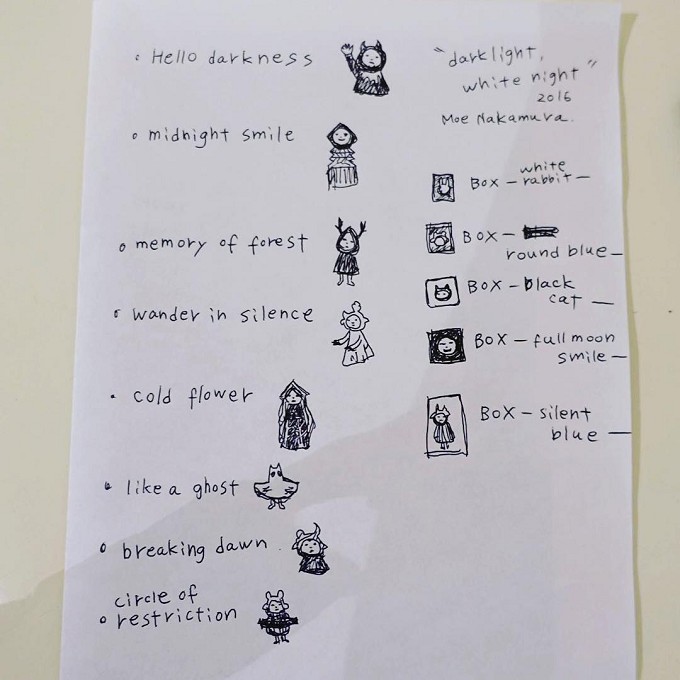 • Hello darkness
• midnight smile
• memory of forest
• wander in silence
• cold flower
• like a ghost
• breaking dawn.
circle of
• restriction
"darklight,
white night"
2016
Moe Nakamura.
white
BOX – rabbit –
BOX –
round blue –
BOX – black
cat –
BOX – full moon
smile –
BOX – silent
blue –